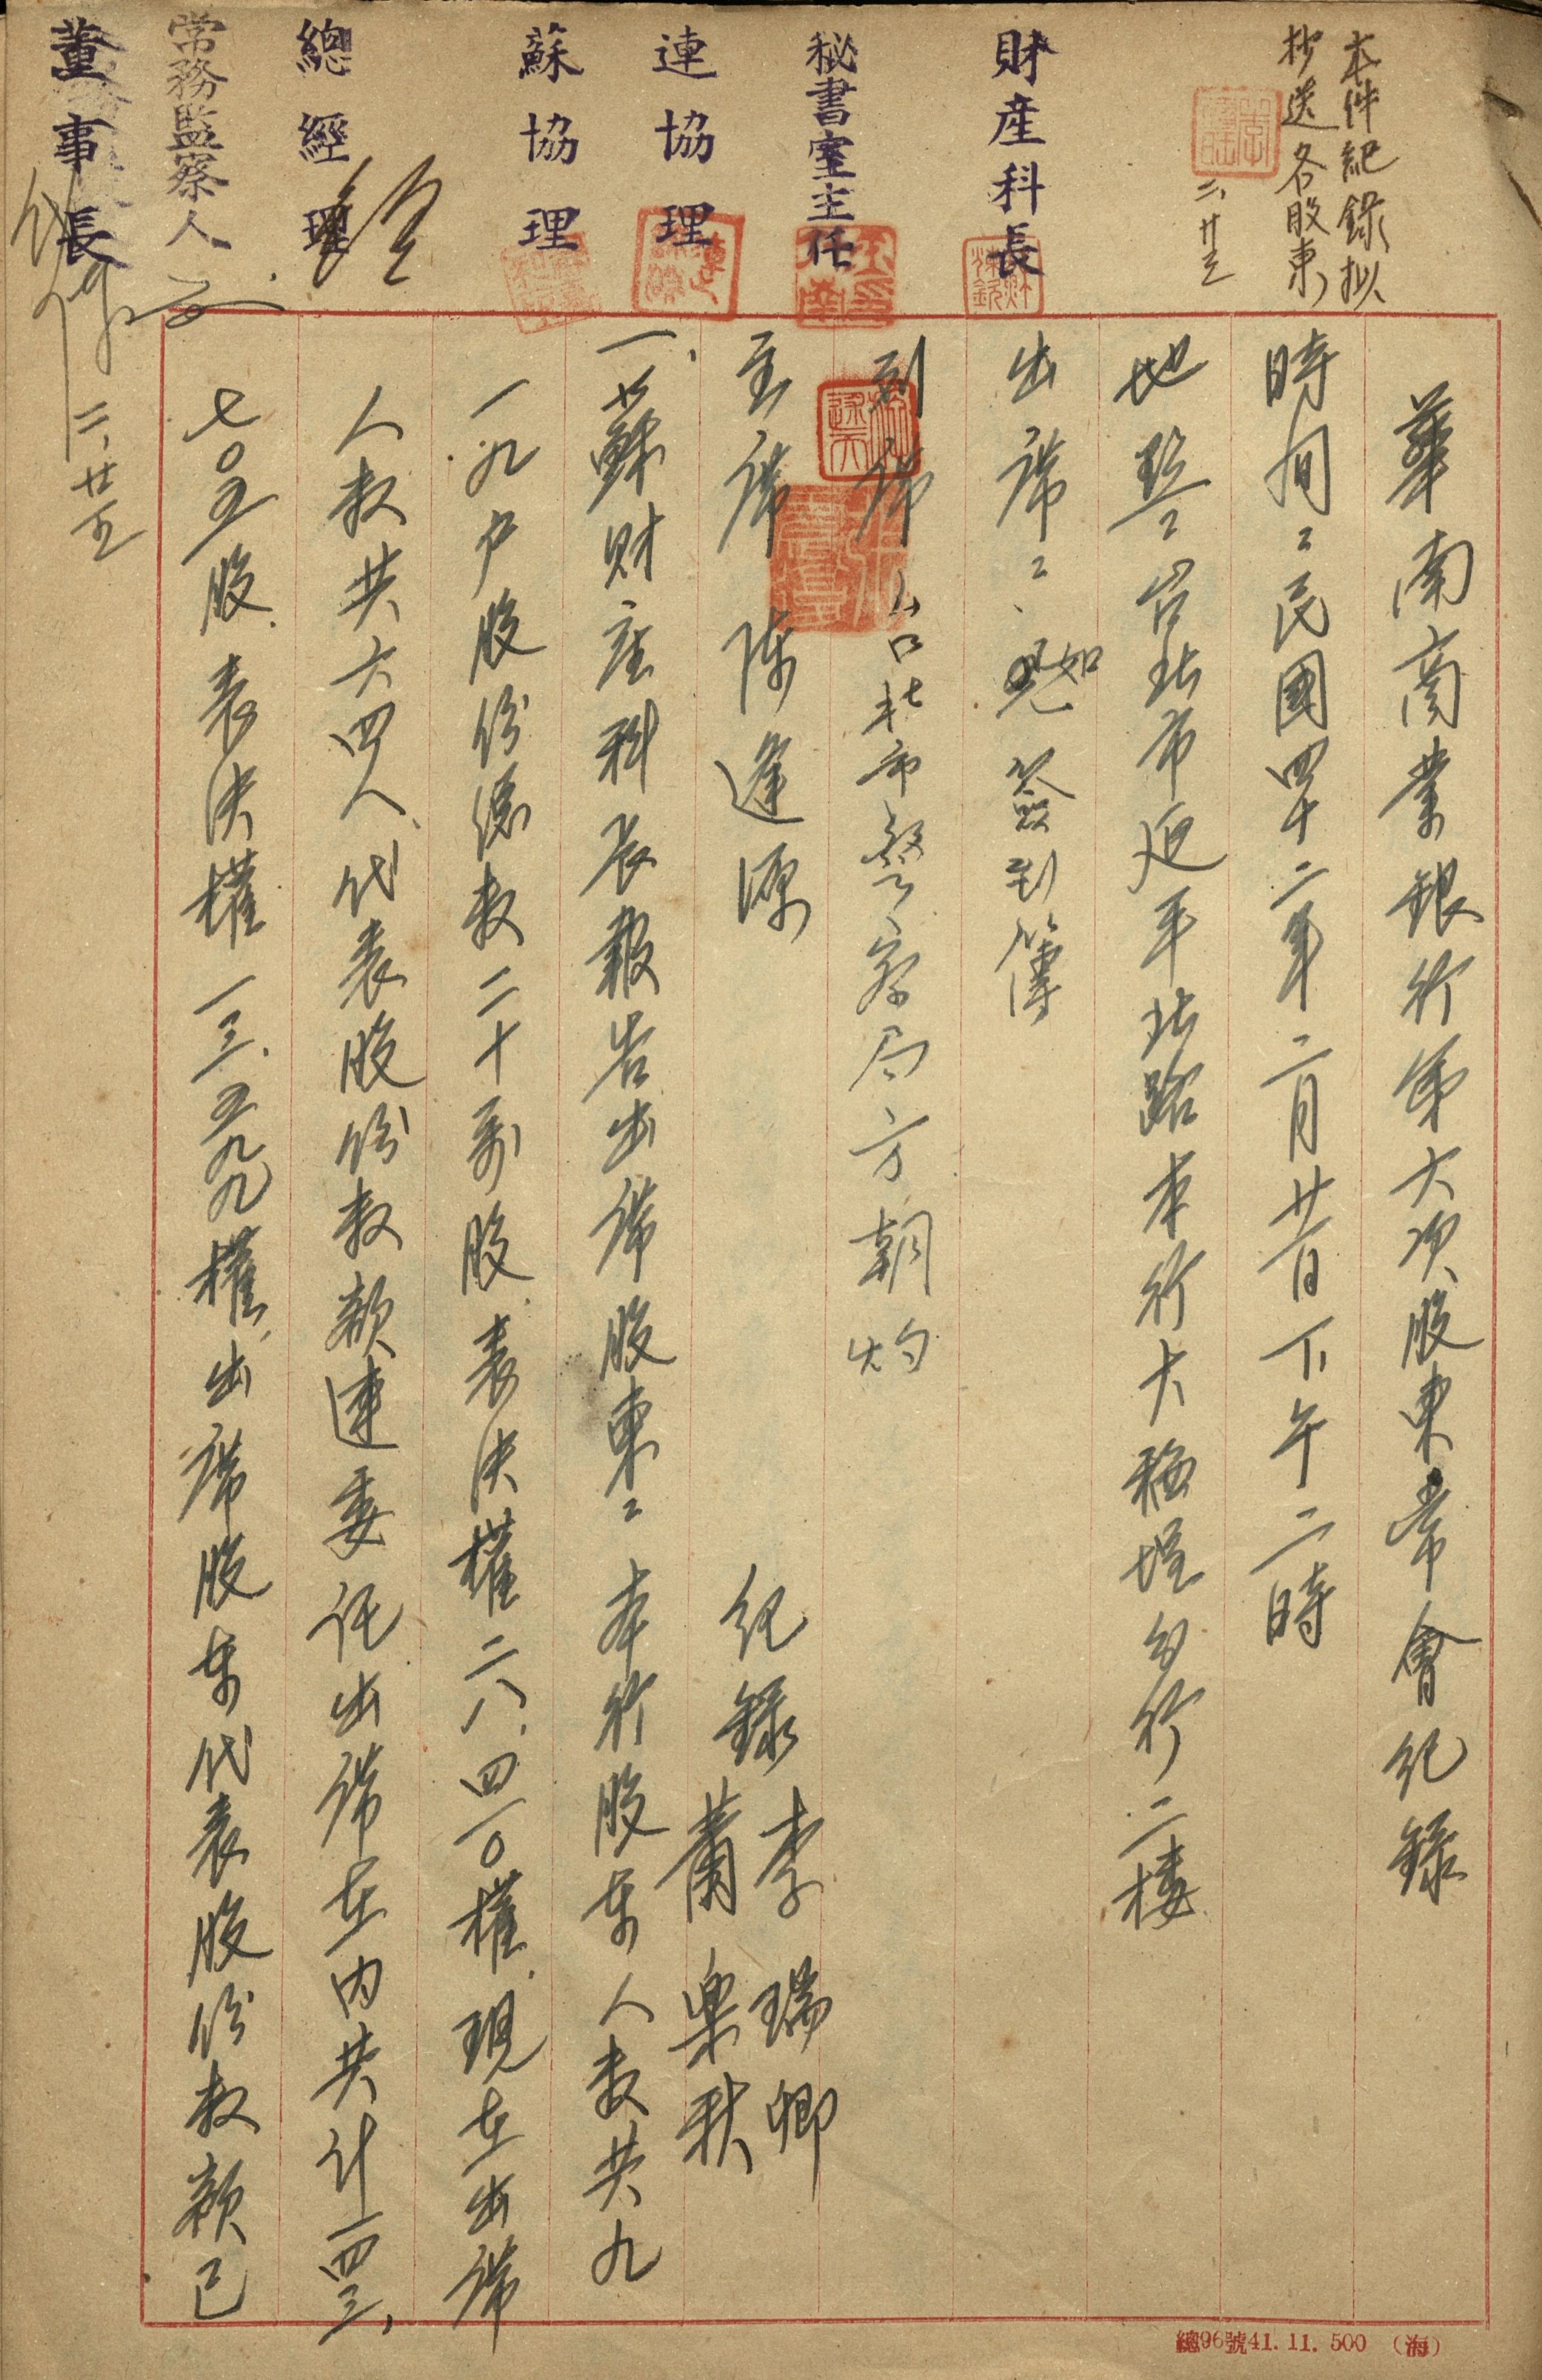 本件紀錄拟
抄送各股東
二、廿三
財產科長
秘書室主任
連協理
蘇協理
總經理
常務監察人
董事長
二、廿五
華南商業銀行第六次股東常會紀錄
時間：民國四十二年二月廿一日下午二時
地點：台北市延平北路本行大稻埕分行二樓
出席：如簽到簿
列席 台北市警察局方朝灼
主席 陳逢源 紀錄 李瑞卿 蕭樂秋
一、蘇財產科長報告出席股東：本行股東人数共九
一九户股份總数二十萬股、表决權二八、四一〇權、現在出席
人数共六四人、代表股份数額連委託出席在内共計一四三、
七〇五股、表决權一三、五九九權、出席股東代表股份数額已
總96號41.11.500（海）